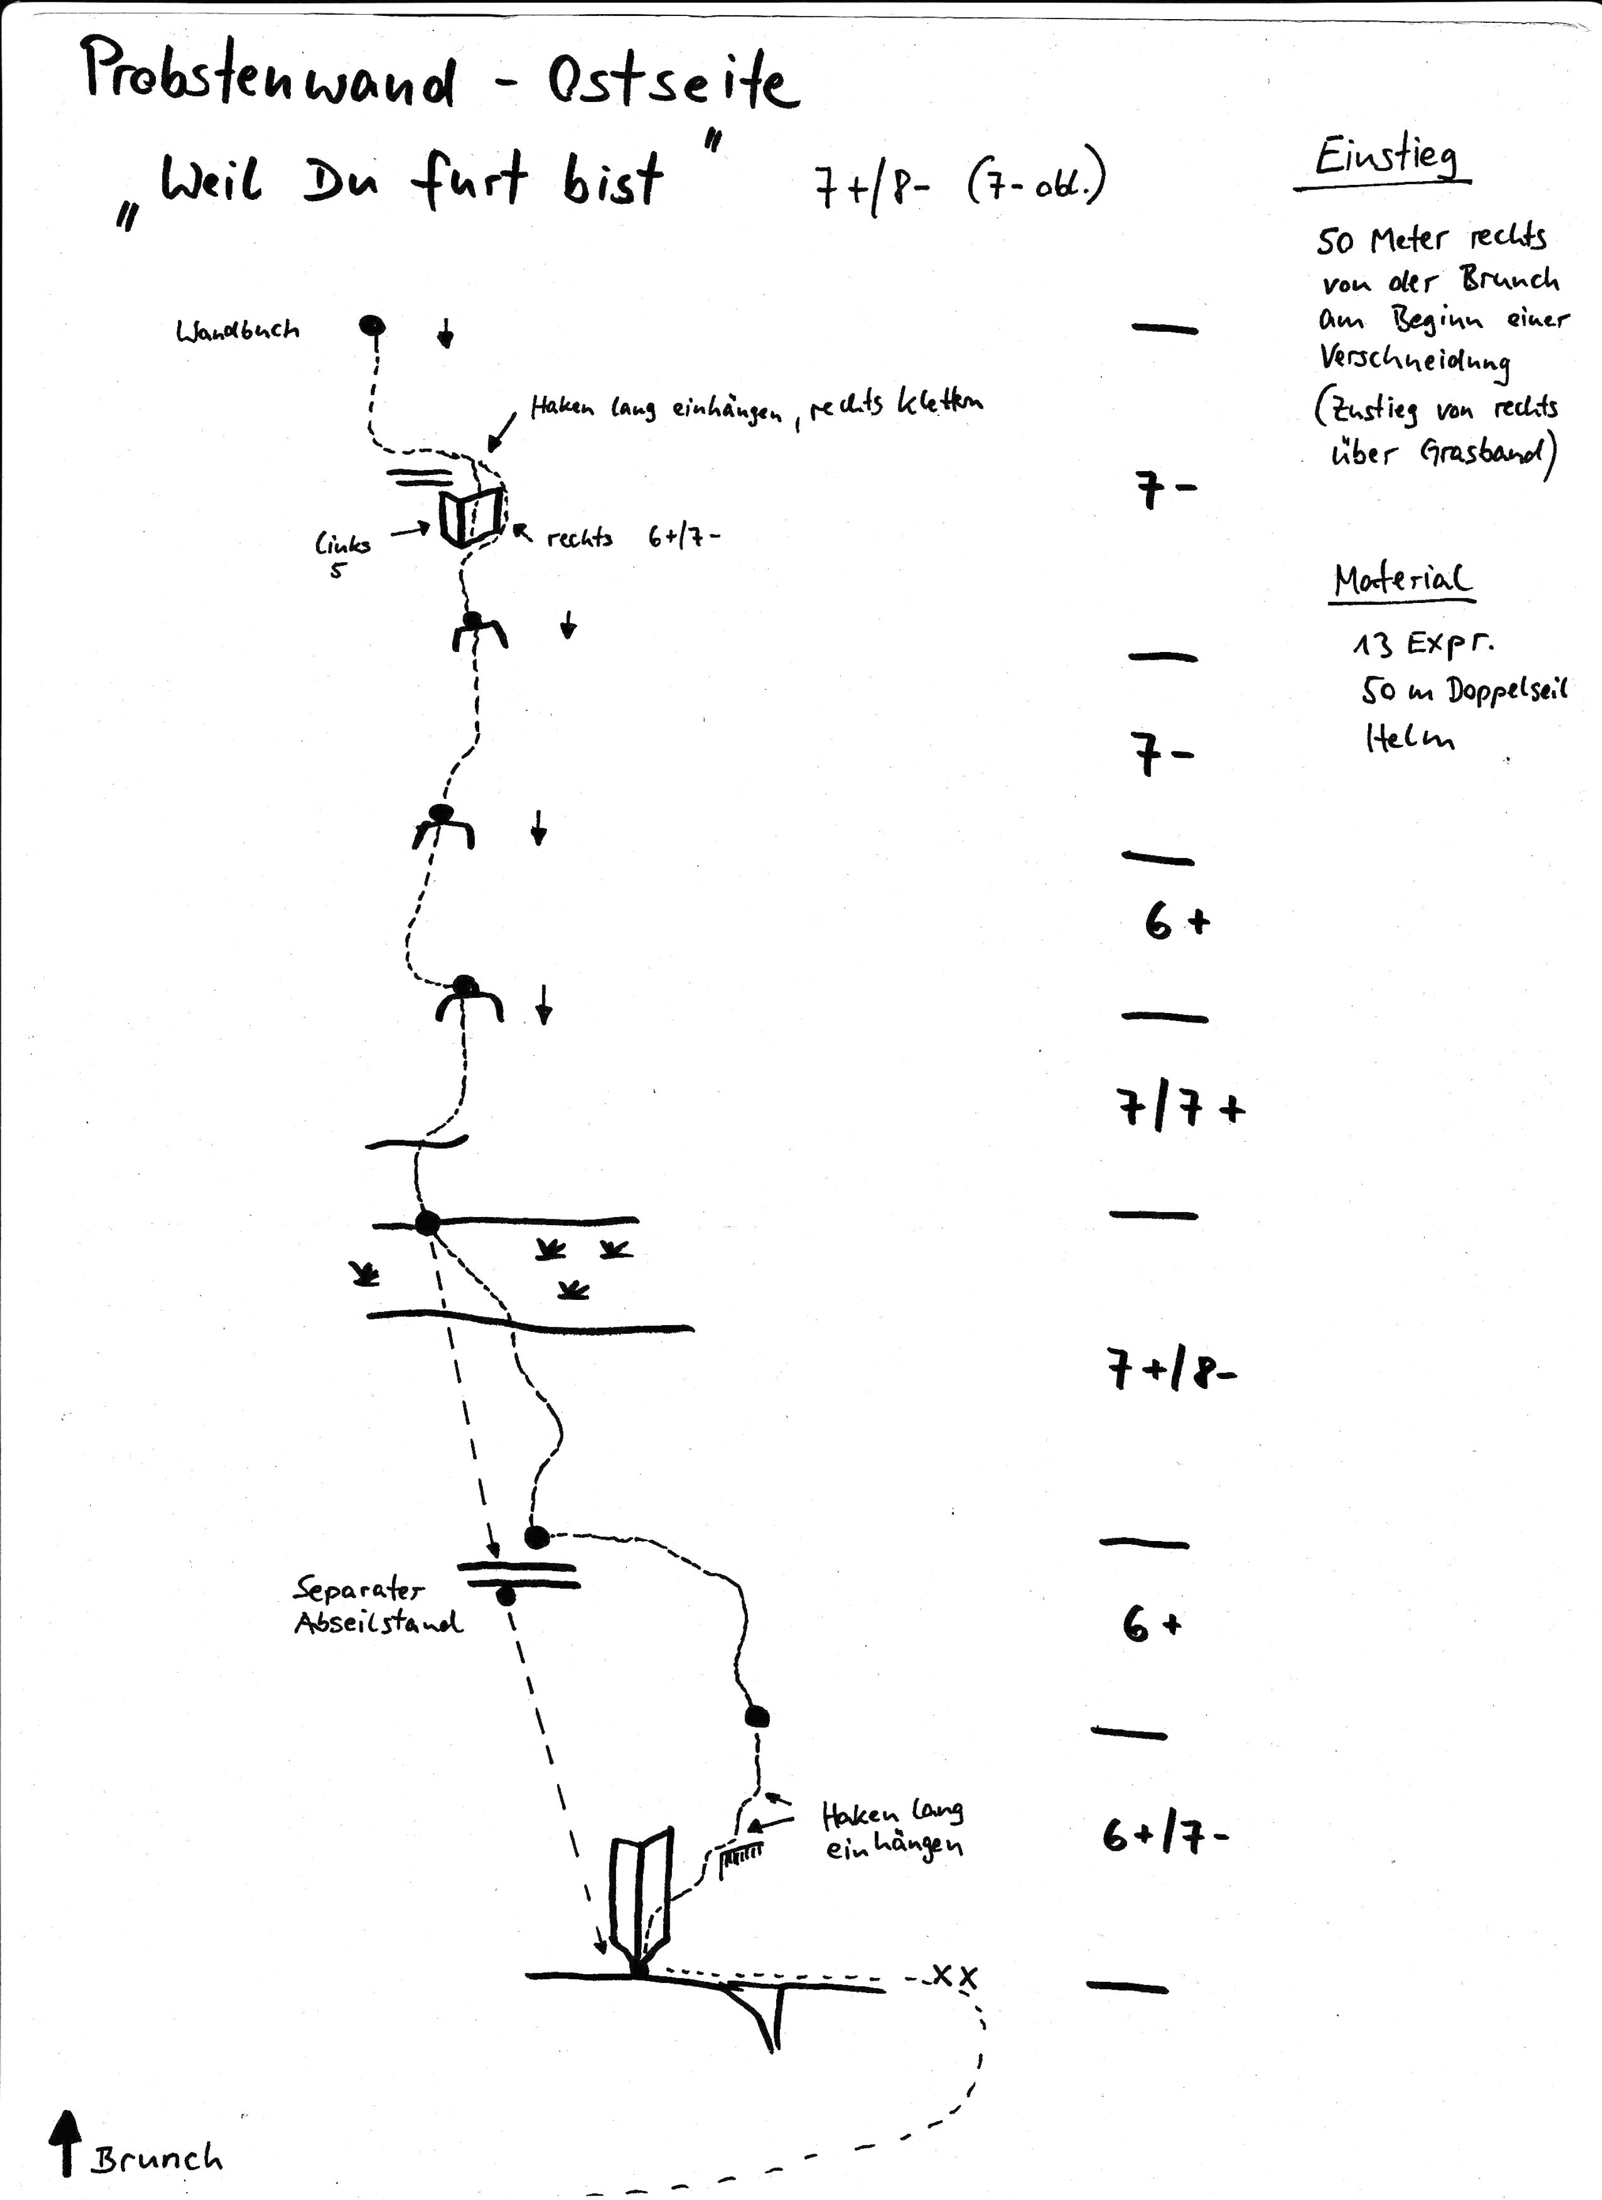 Probstenwand - Ostseite
„Weil Du furt bist" 7+/8- (7- obl.)
Einstieg
50 Meter rechts
von der Brunch
am Beginn einer
Verschneidung
(Zustieg von rechts
über Grasband)
Material
13 Expr.
50 m Doppelseil
Helm
Wandbuch
Haken lang einhängen, rechts klettern
7-
links
5
rechts 6+/7-
7-
6+
7/7+
7+/8-
Separater
Abseilstand
6+
Haken lang
einhängen
6+/7-
XX
Brunch